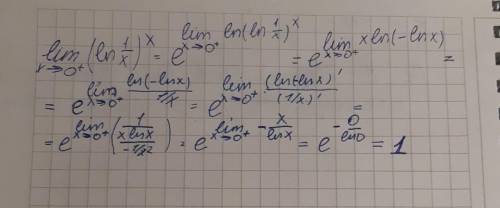 lim x→0⁺ (ln 1/x)^x = e^{lim x→0⁺ ln(ln 1/x)^x} = e^{lim x→0⁺ x ln(-lnx)} =
= e^{lim x→0⁺ ln(-lnx)/(1/x)} = e^{lim x→0⁺ (ln(-lnx))'/(1/x)'} =
= e^{lim x→0⁺ ((1/(x lnx))/(-1/x²))} = e^{lim x→0⁺ -x/lnx} = e^{-0/ln0} = 1